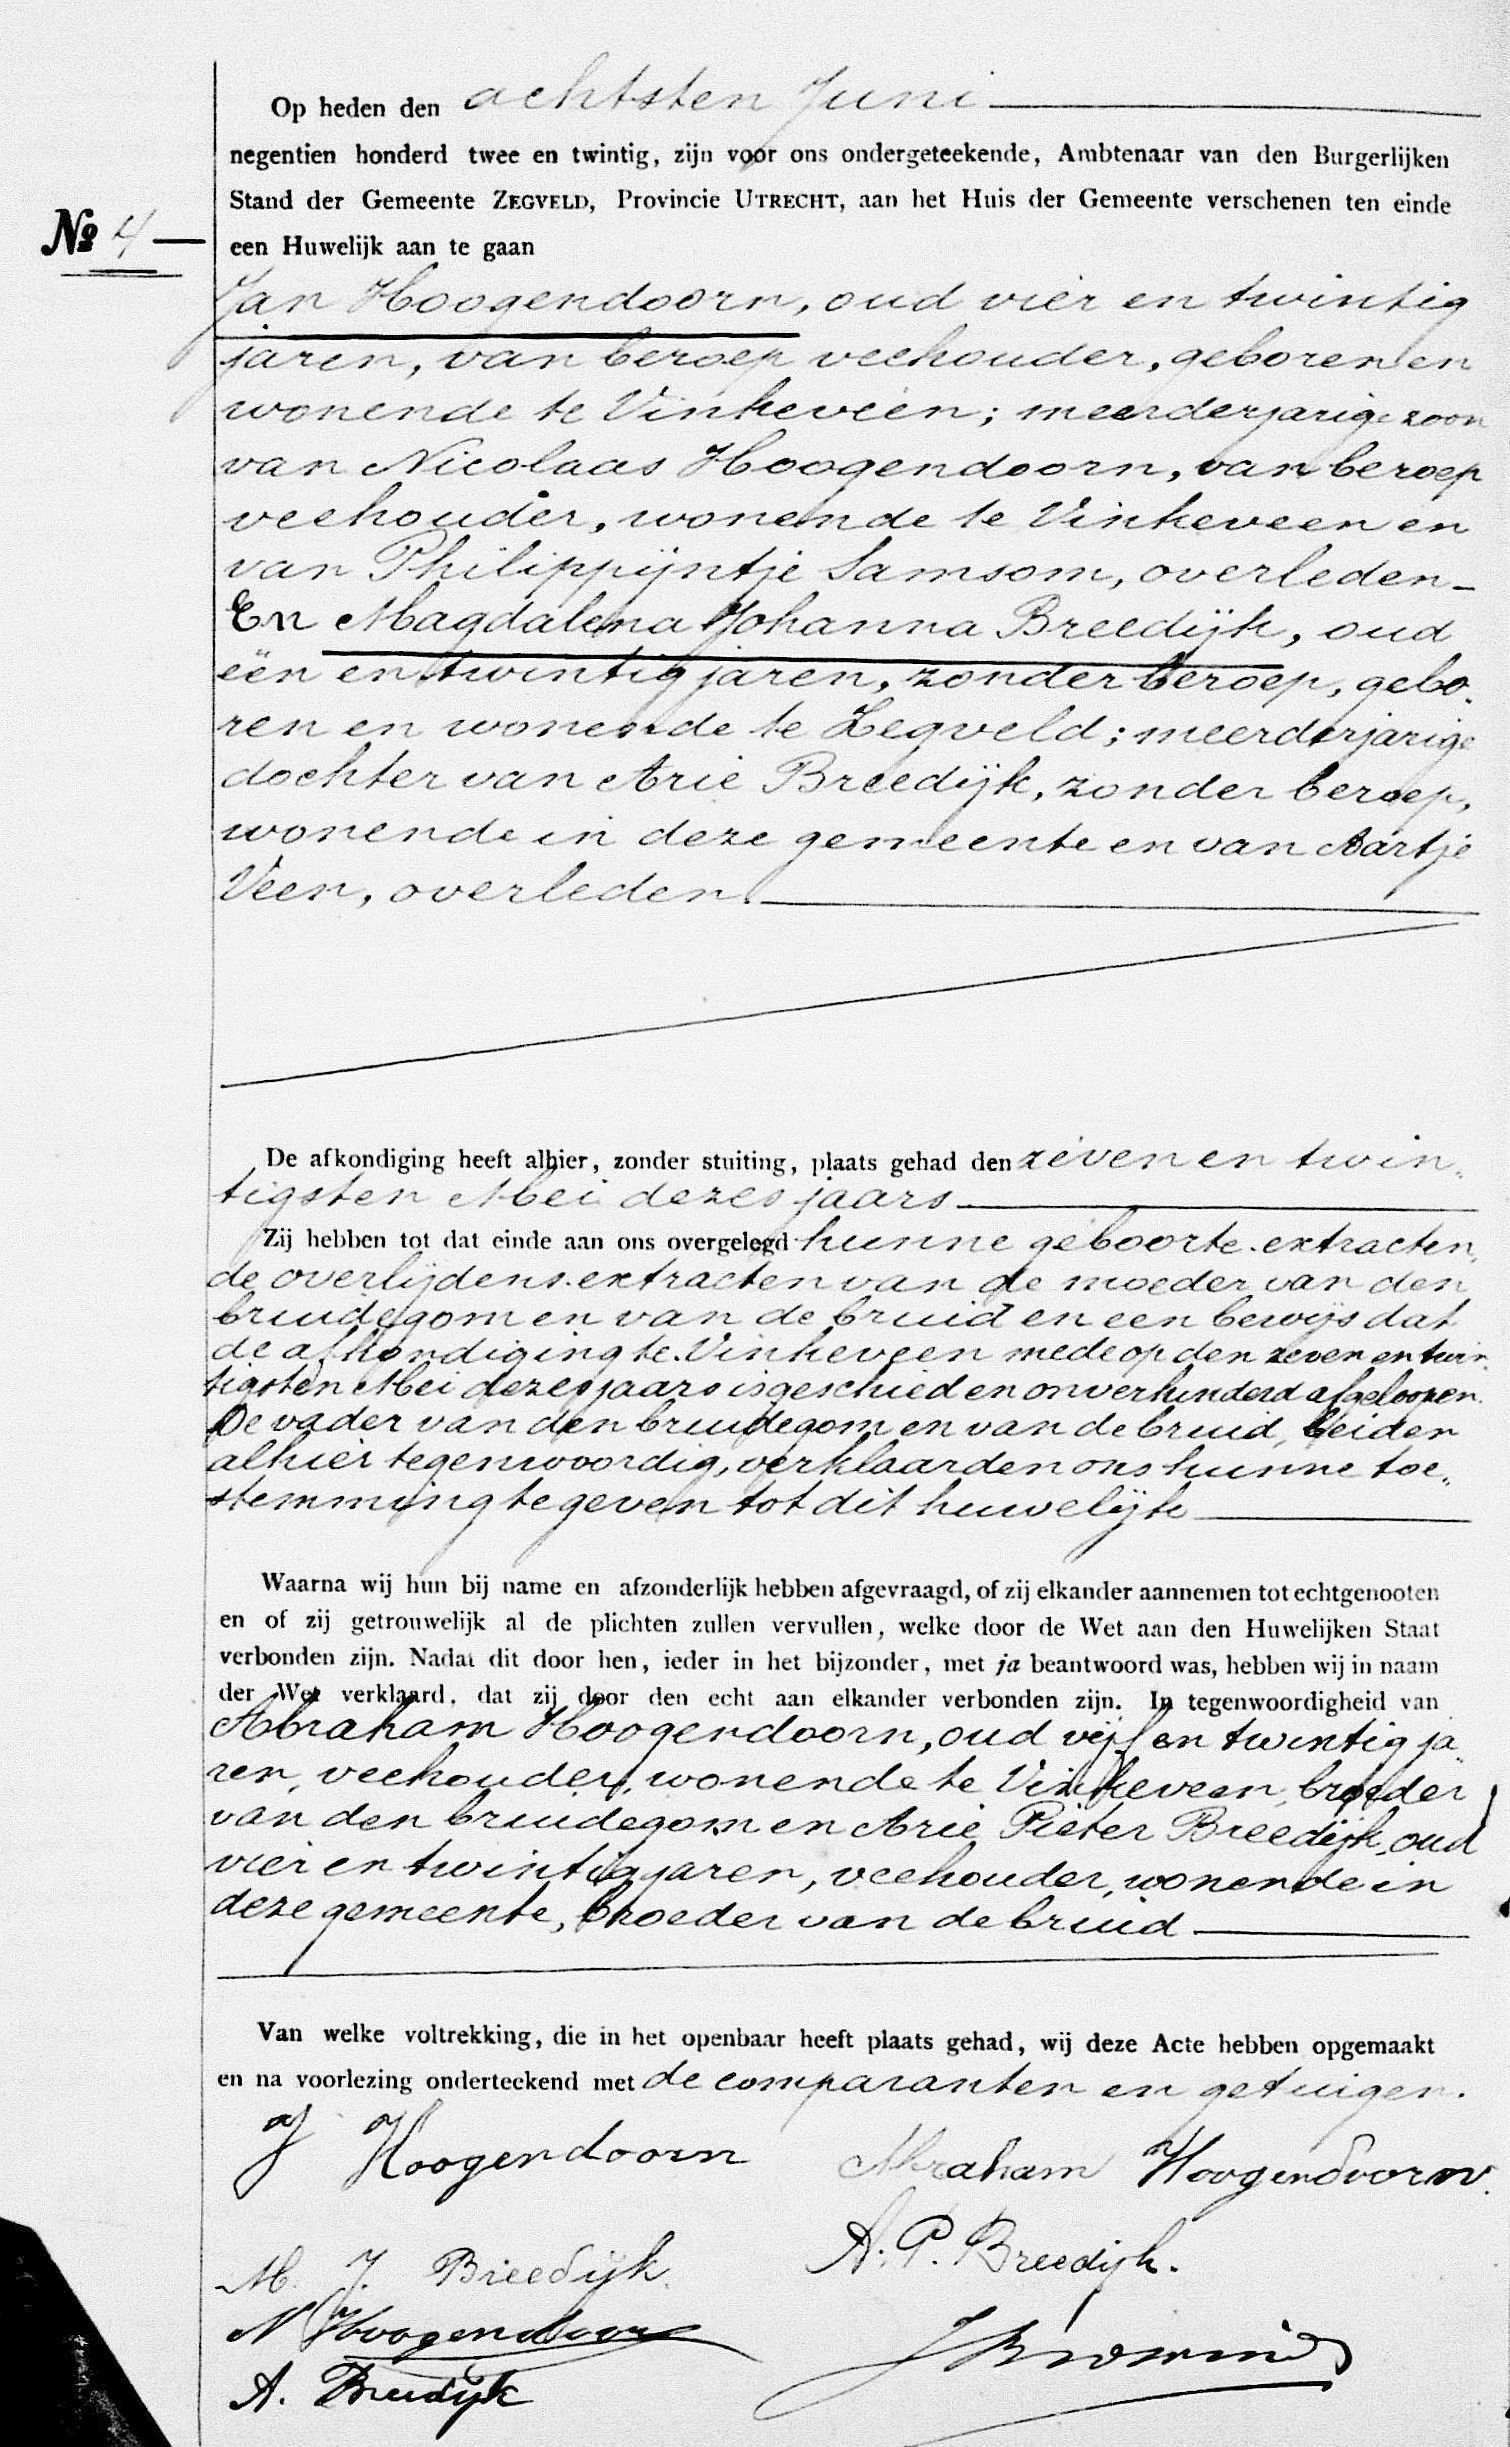 Op heden den achtsten Juni
negentien honderd twee en twintig, zijn voor ons ondergeteekende, Ambtenaar van den Burgerlijken
Stand der Gemeente ZEGVELD, Provincie UTRECHT, aan het Huis der Gemeente verschenen ten einde
№ 4 een Huwelijk aan te gaan
Jan Hoogendoorn, oud vier en twintig
jaren, van beroep veehouder, geboren en
wonende te Vinkeveen; meerderjarige zoon
van Nicolaas Hoogendoorn, van beroep
veehouder, wonende te Vinkeveen en
van Philippijntje Samsom, overleden-
En Magdalena Johanna Breedijk, oud
eën en twintig jaren, zonder beroep, gebo-
ren en wonende te Zegveld; meerderjarige
dochter van Arie Breedijk, zonder beroep,
wonende in deze gemeente en van Aartje
Veen, overleden.
De afkondiging heeft alhier, zonder stuiting, plaats gehad den zeven en twin-
tigsten Mei dezes jaars
Zij hebben tot dat einde aan ons overgelegd hunne geboorte-extracten,
de overlijdens-extracten van de moeder van den
bruidegom en van de bruid en een bewijs dat
de afkondiging te Vinkeveen mede op den zeven en twin-
tigsten Mei dezes jaars is geschied en onverhinderd afgeloopen.
De vader van den bruidegom en van de bruid, beiden
alhier tegenwoordig, verklaarden ons hunne toe-
stemming te geven tot dit huwelijk
Waarna wij hun bij name en afzonderlijk hebben afgevraagd, of zij elkander aannemen tot echtgenooten
en of zij getrouwelijk al de plichten zullen vervullen, welke door de Wet aan den Huwelijken Staat
verbonden zijn. Nadat dit door hen, ieder in het bijzonder, met ja beantwoord was, hebben wij in naam
der Wet verklaard, dat zij door den echt aan elkander verbonden zijn. In tegenwoordigheid van
Abraham Hoogendoorn, oud vijf en twintig ja-
ren, veehouder, wonende te Vinkeveen, broeder
van den bruidegom en Arie Pieter Breedijk, oud
vier en twintig jaren, veehouder, wonende in
deze gemeente, broeder van de bruid
Van welke voltrekking, die in het openbaar heeft plaats gehad, wij deze Acte hebben opgemaakt
en na voorlezing onderteekend met de comparanten en getuigen.
J Hoogendoorn Abraham Hoogendoorn.
A. P. Breedijk.
M. J. Breedijk.
N Hoogendoorn
A. Breedijk